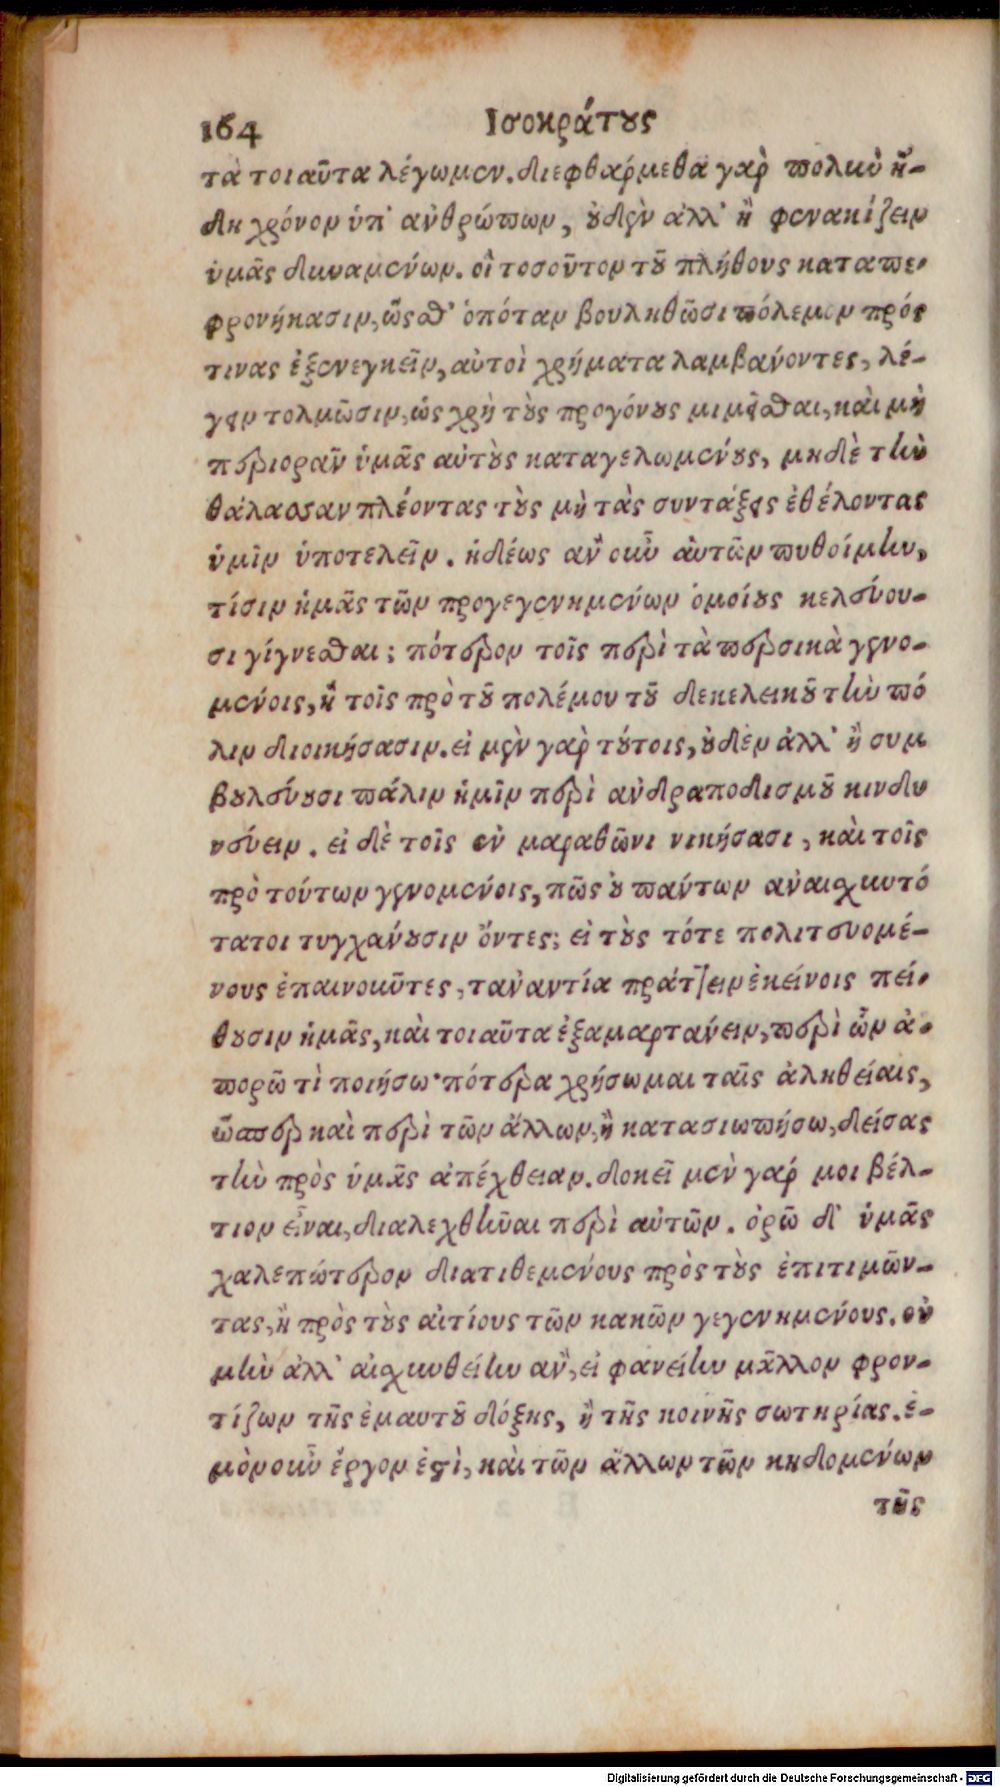 164 Ισοκράτους
τὰ τοιαῦτα λέγωμεν. διεφθάρμεθα γὰρ πολὺν ἤ-
δη χρόνον ὑπ' ἀνθρώπων, οὐδὲν ἀλλ' ἢ φενακίζειν
ὑμᾶς δυναμένων. οἳ τοσοῦτον τοῦ πλήθους καταπε-
φρονήκασιν, ὥσθ' ὁπόταν βουληθῶσι πόλεμον πρός
τινας ἐξενεγκεῖν, αὐτοὶ χρήματα λαμβάνοντες, λέ-
γειν τολμῶσιν, ὡς χρὴ τοὺς προγόνους μιμεῖσθαι, καὶ μὴ
περιορᾶν ὑμᾶς αὐτοὺς καταγελωμένους, μηδὲ τὴν
θάλασσαν πλέοντας τοὺς μὴ τὰς συντάξεις ἐθέλοντας
ὑμῖν ὑποτελεῖν. ἡδέως ἂν οὖν αὐτῶν πυθοίμην,
τίσιν ἡμᾶς τῶν προγεγενημένων ὁμοίους κελεύου-
σι γίγνεσθαι; πότερον τοῖς περὶ τὰ περσικὰ γενο-
μένοις, ἢ τοῖς πρὸ τοῦ πολέμου τοῦ δεκελεικοῦ τὴν πό
λιν διοικήσασιν. εἰ μὲν γὰρ τούτοις, οὐδὲν ἀλλ' ἢ συμ
βουλεύουσι πάλιν ἡμῖν περὶ ἀνδραποδισμοῦ κινδυ
νεύειν. εἰ δὲ τοῖς ἐν μαραθῶνι νικήσασι, καὶ τοῖς
πρὸ τούτων γενομένοις, πῶς οὐ πάντων ἀναισχυντό
τατοι τυγχάνουσιν ὄντες; εἰ τοὺς τότε πολιτευομέ-
νους ἐπαινοῦντες, τἀναντία πράττειν ἐκείνοις πεί-
θουσιν ἡμᾶς, καὶ τοιαῦτα ἐξαμαρτάνειν, περὶ ὧν ἀ-
πορῶ τὶ ποιήσω· πότερα χρήσωμαι ταῖς ἀληθείαις,
ὥσπερ καὶ περὶ τῶν ἄλλων, ἢ κατασιωπήσω, δείσας
τὴν πρὸς ὑμᾶς ἀπέχθειαν. δοκεῖ μὲν γάρ μοι βέλ-
τιον εἶναι, διαλεχθῆναι περὶ αὐτῶν. ὁρῶ δ' ὑμᾶς
χαλεπώτερον διατιθεμένους πρὸς τοὺς ἐπιτιμῶν-
τας, ἢ πρὸς τοὺς αἰτίους τῶν κακῶν γεγενημένους. οὐ
μὴν ἀλλ' αἰσχυνθείην ἂν, εἰ φανείην μᾶλλον φρον-
τίζων τῆς ἐμαυτοῦ δόξης, ἢ τῆς κοινῆς σωτηρίας. ἐ-
μὸν οὖν ἔργον ἐστὶ, καὶ τῶν ἄλλων τῶν κηδομένων
τῆς
Digitalisierung gefördert durch die Deutsche Forschungsgemeinschaft - DFG